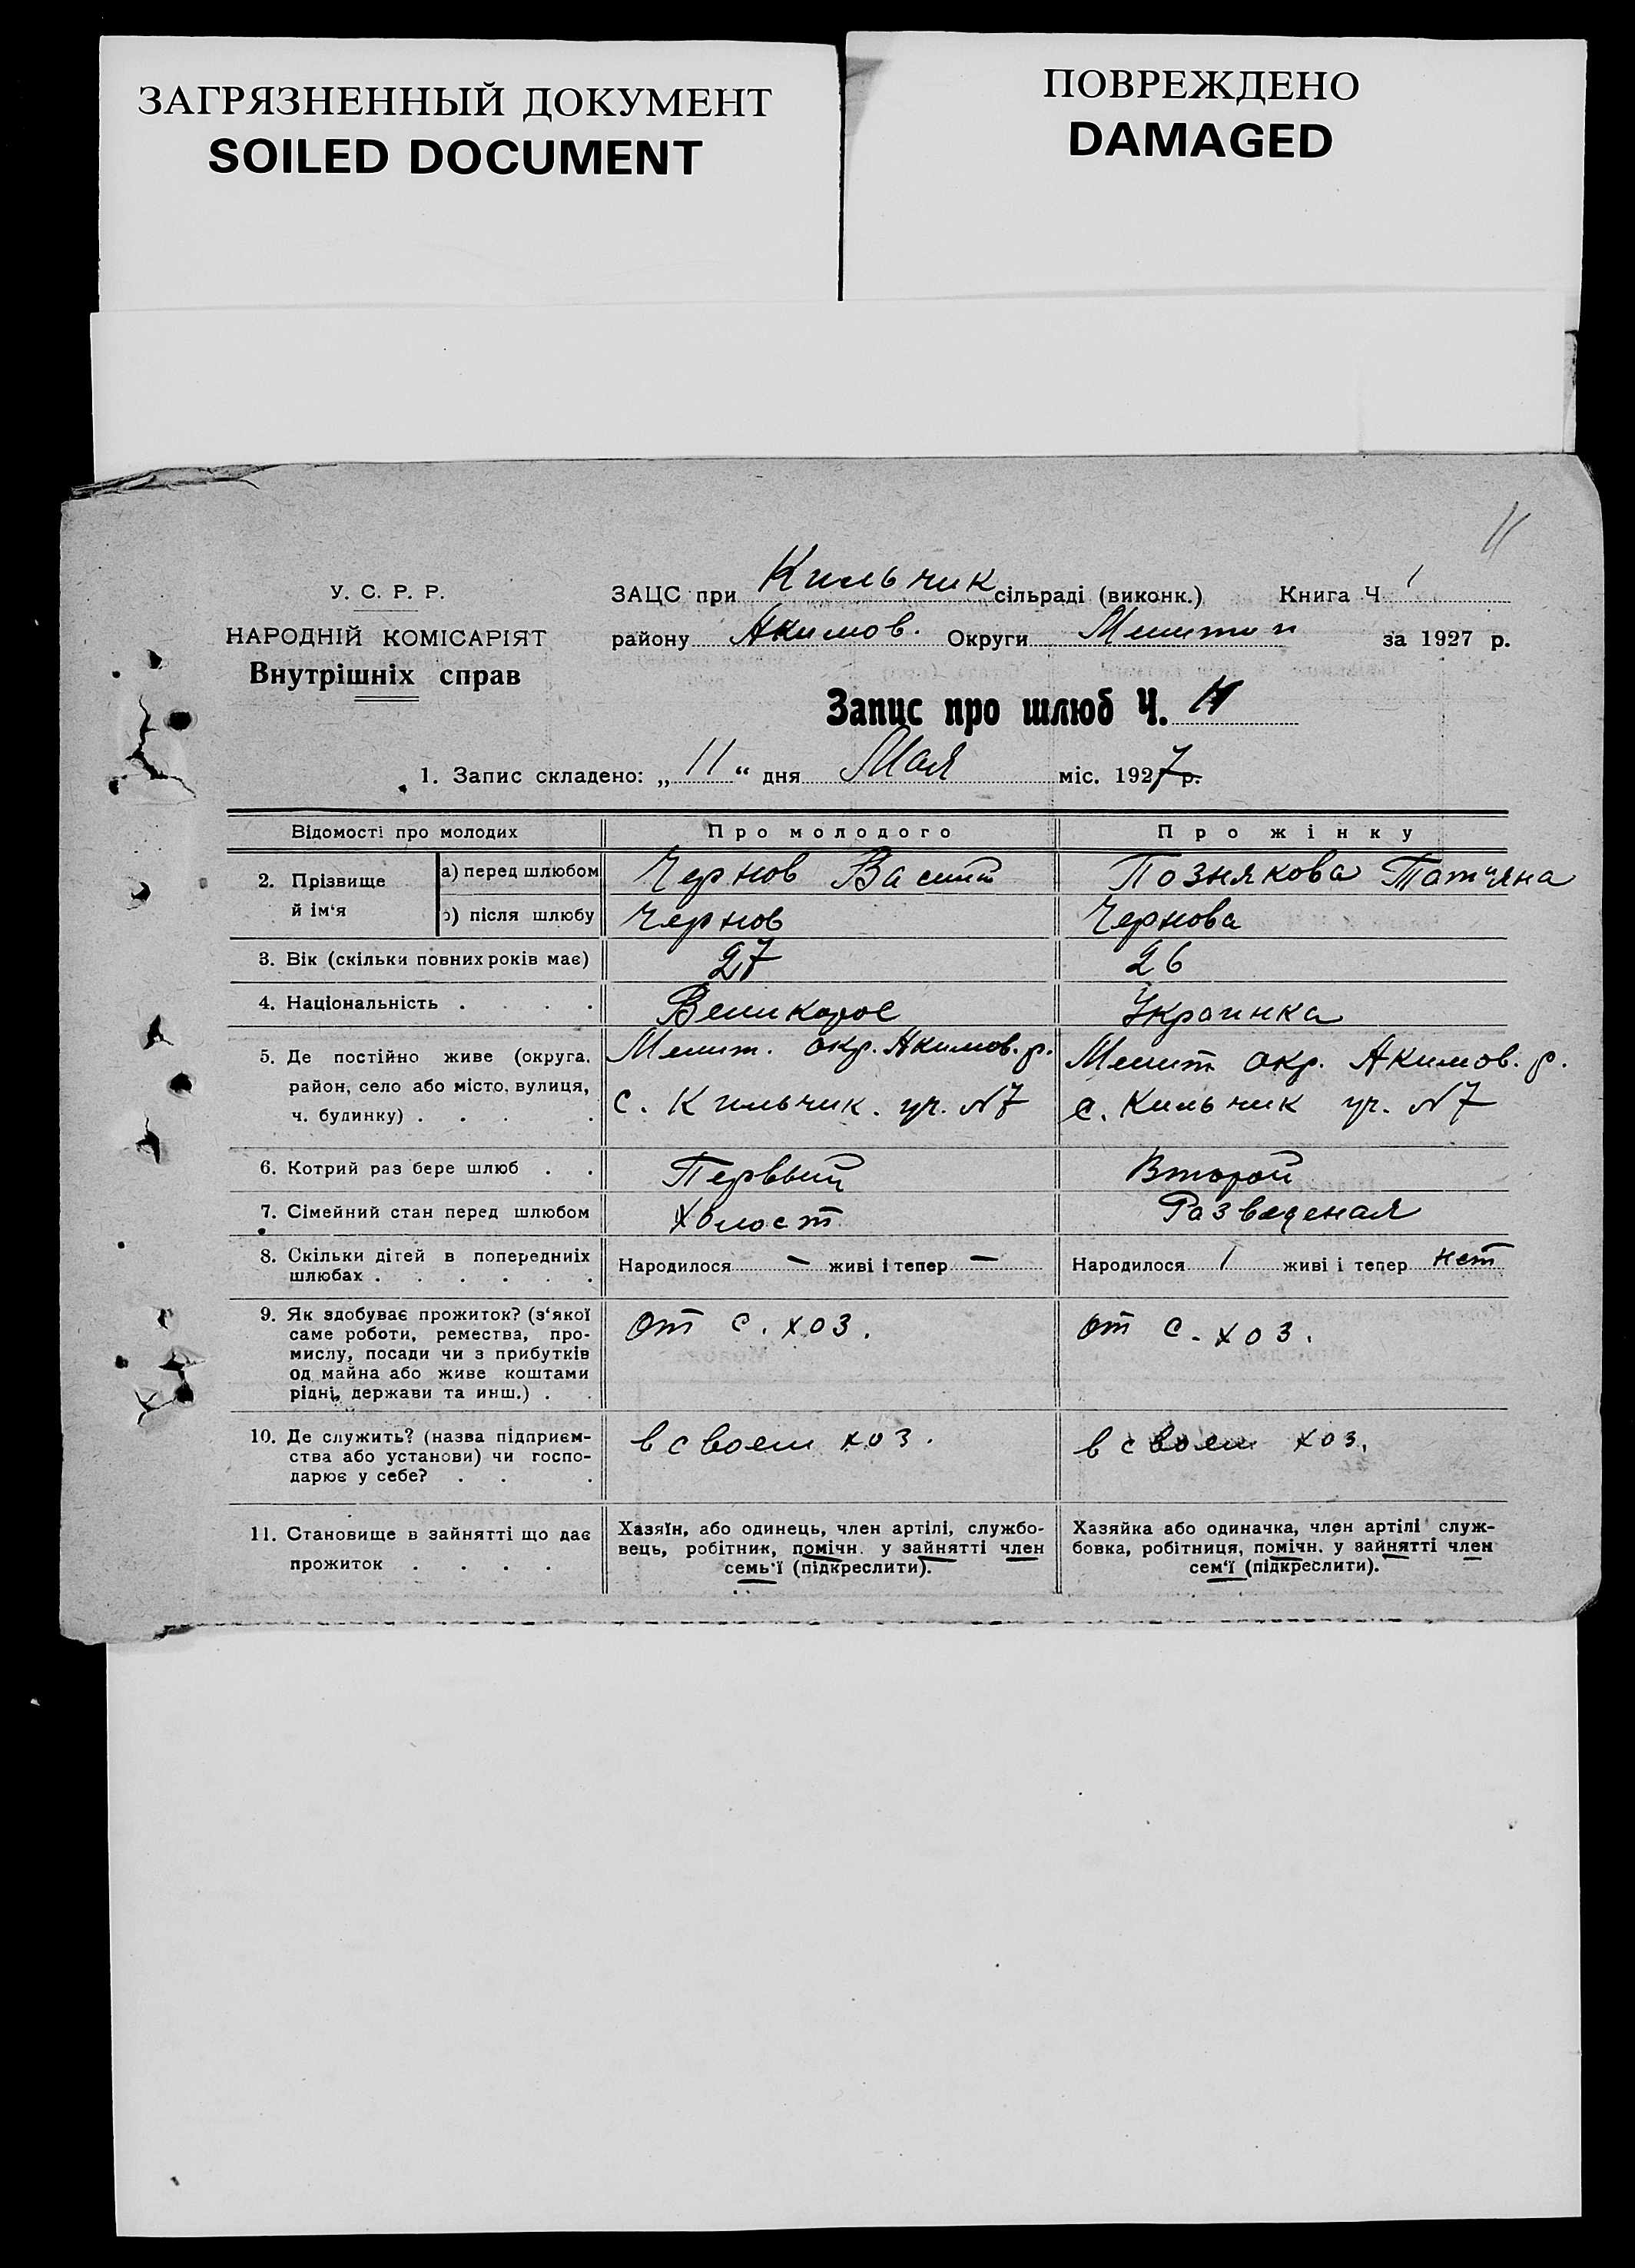 ЗАГРЯЗНЕННЫЙ ДОКУМЕНТ
SOILED DOCUMENT
ПОВРЕЖДЕНО
DAMAGED
11
У. С. Р. Р.
НАРОДНІЙ КОМІСАРІЯТ
Внутрішніх справ
ЗАЦС при Кильчик сільраді (виконк.) Книга Ч 1
району Акимов. Округи Мелитоп за 1927 р.
Запис про шлюб Ч.
1. Запис складено: „ 11 “ дня Мая міс. 1927 р.
Відомості про молодих Про молодого Про жінку
2. Прізвище й ім‘я а) перед шлюбом Чернов Василий Познякова Татьяна
б) після шлюбу Чернов Чернова
3. Вік (скільки повних років має) 27 26
4. Національність . . . . Великорос Украинка
5. Де постійно живе (округа, Мелит. окр. Акимов. р. Мелит окр. Акимов. р.
район, село або місто, вулиця, с. Кильчик. уч. N7 с. Кильчик уч. N7
ч. будинку) . . . .
6. Котрий раз бере шлюб . . Первый Второй
7. Сімейний стан перед шлюбом Холост Разведеная
8. Скільки дітей в попередниіх Народилося – живі і тепер – Народилося 1 живі і тепер нет
шлюбах . . . . . .
9. Як здобуває прожиток? (з‘якої От с. хоз. От с. хоз.
саме роботи, ремества, про-
мислу, посади чи з прибутків
од майна або живе коштами
рідні, держави та инш.) . .
10. Де служить? (назва підприєм- в своем хоз. в своем хоз.
ства або установи) чи госпо-
дарює у себе? . . .
11. Становище в зайнятті що дає
прожиток . . . .
Хазяїн, або одинець, член артілі, службо-
вець, робітник, помічн. у зайнятті член
семь‘ї (підкреслити).
Хазяйка або одиначка, член артілі служ-
бовка, робітниця, помічн. у зайнятті член
сем‘ї (підкреслити).